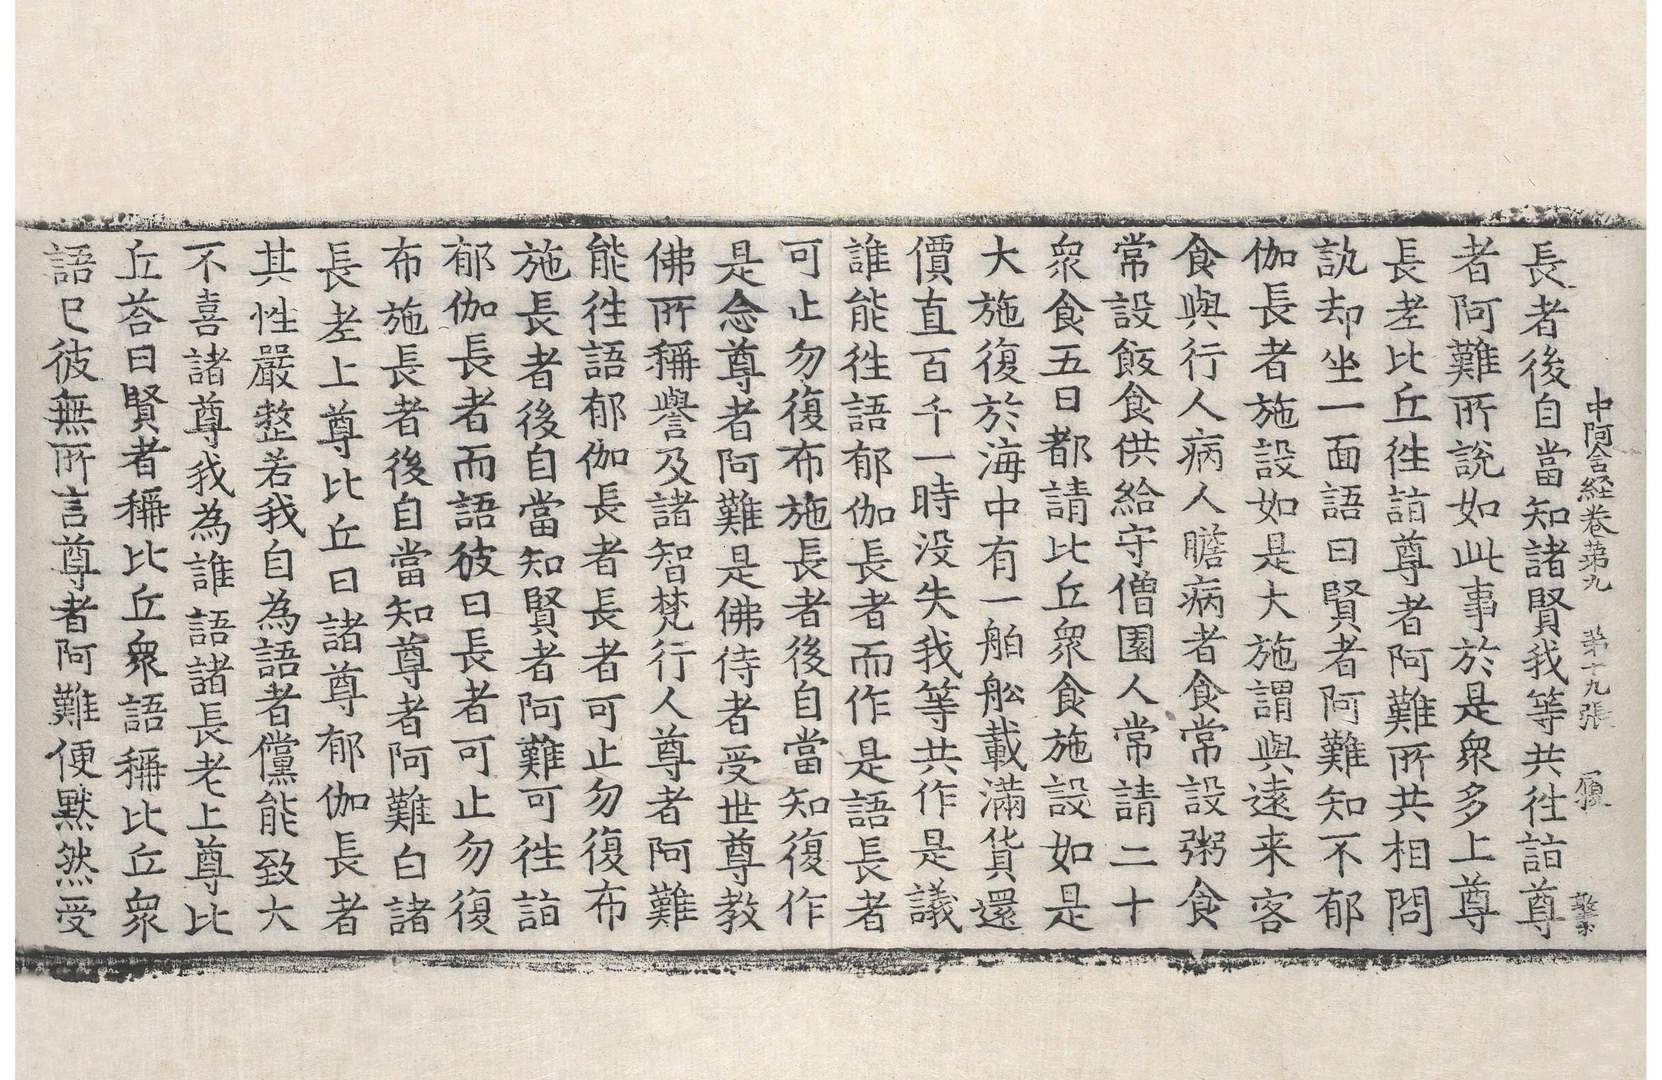 中阿含経卷第九 第十九張
長者後自當知諸賢我等共徃詣尊
者阿難所說如此事於是衆多上尊
長老比丘徃詣尊者阿難所共相問
訊却坐一面語曰賢者阿難知不郁
伽長者施設如是大施謂與遠来客
食與行人病人瞻病者食常設粥食
常設飯食供給守僧園人常請二十
衆食五日都請比丘衆食施設如是
大施復於海中有一舶舩載滿貨還
價直百千一時没失我等共作是議
誰能徃語郁伽長者而作是語長者
可止勿復布施長者後自當知復作
是念尊者阿難是佛侍者受世尊教
佛所稱譽及諸智梵行人尊者阿難
能徃語郁伽長者長者可止勿復布
施長者後自當知賢者阿難可徃詣
郁伽長者而語彼曰長者可止勿復
布施長者後自當知尊者阿難白諸
長老上尊比丘曰諸尊郁伽長者
其性嚴整若我自為語者儻能致大
不喜諸尊我為誰語諸長老上尊比
丘荅曰賢者稱比丘衆語稱比丘衆
語已彼無所言尊者阿難便黙然受